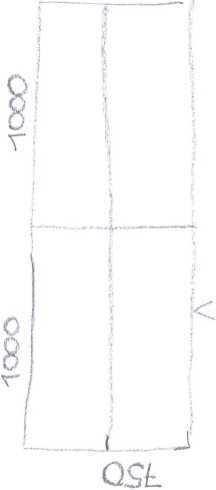 1000
1000
750